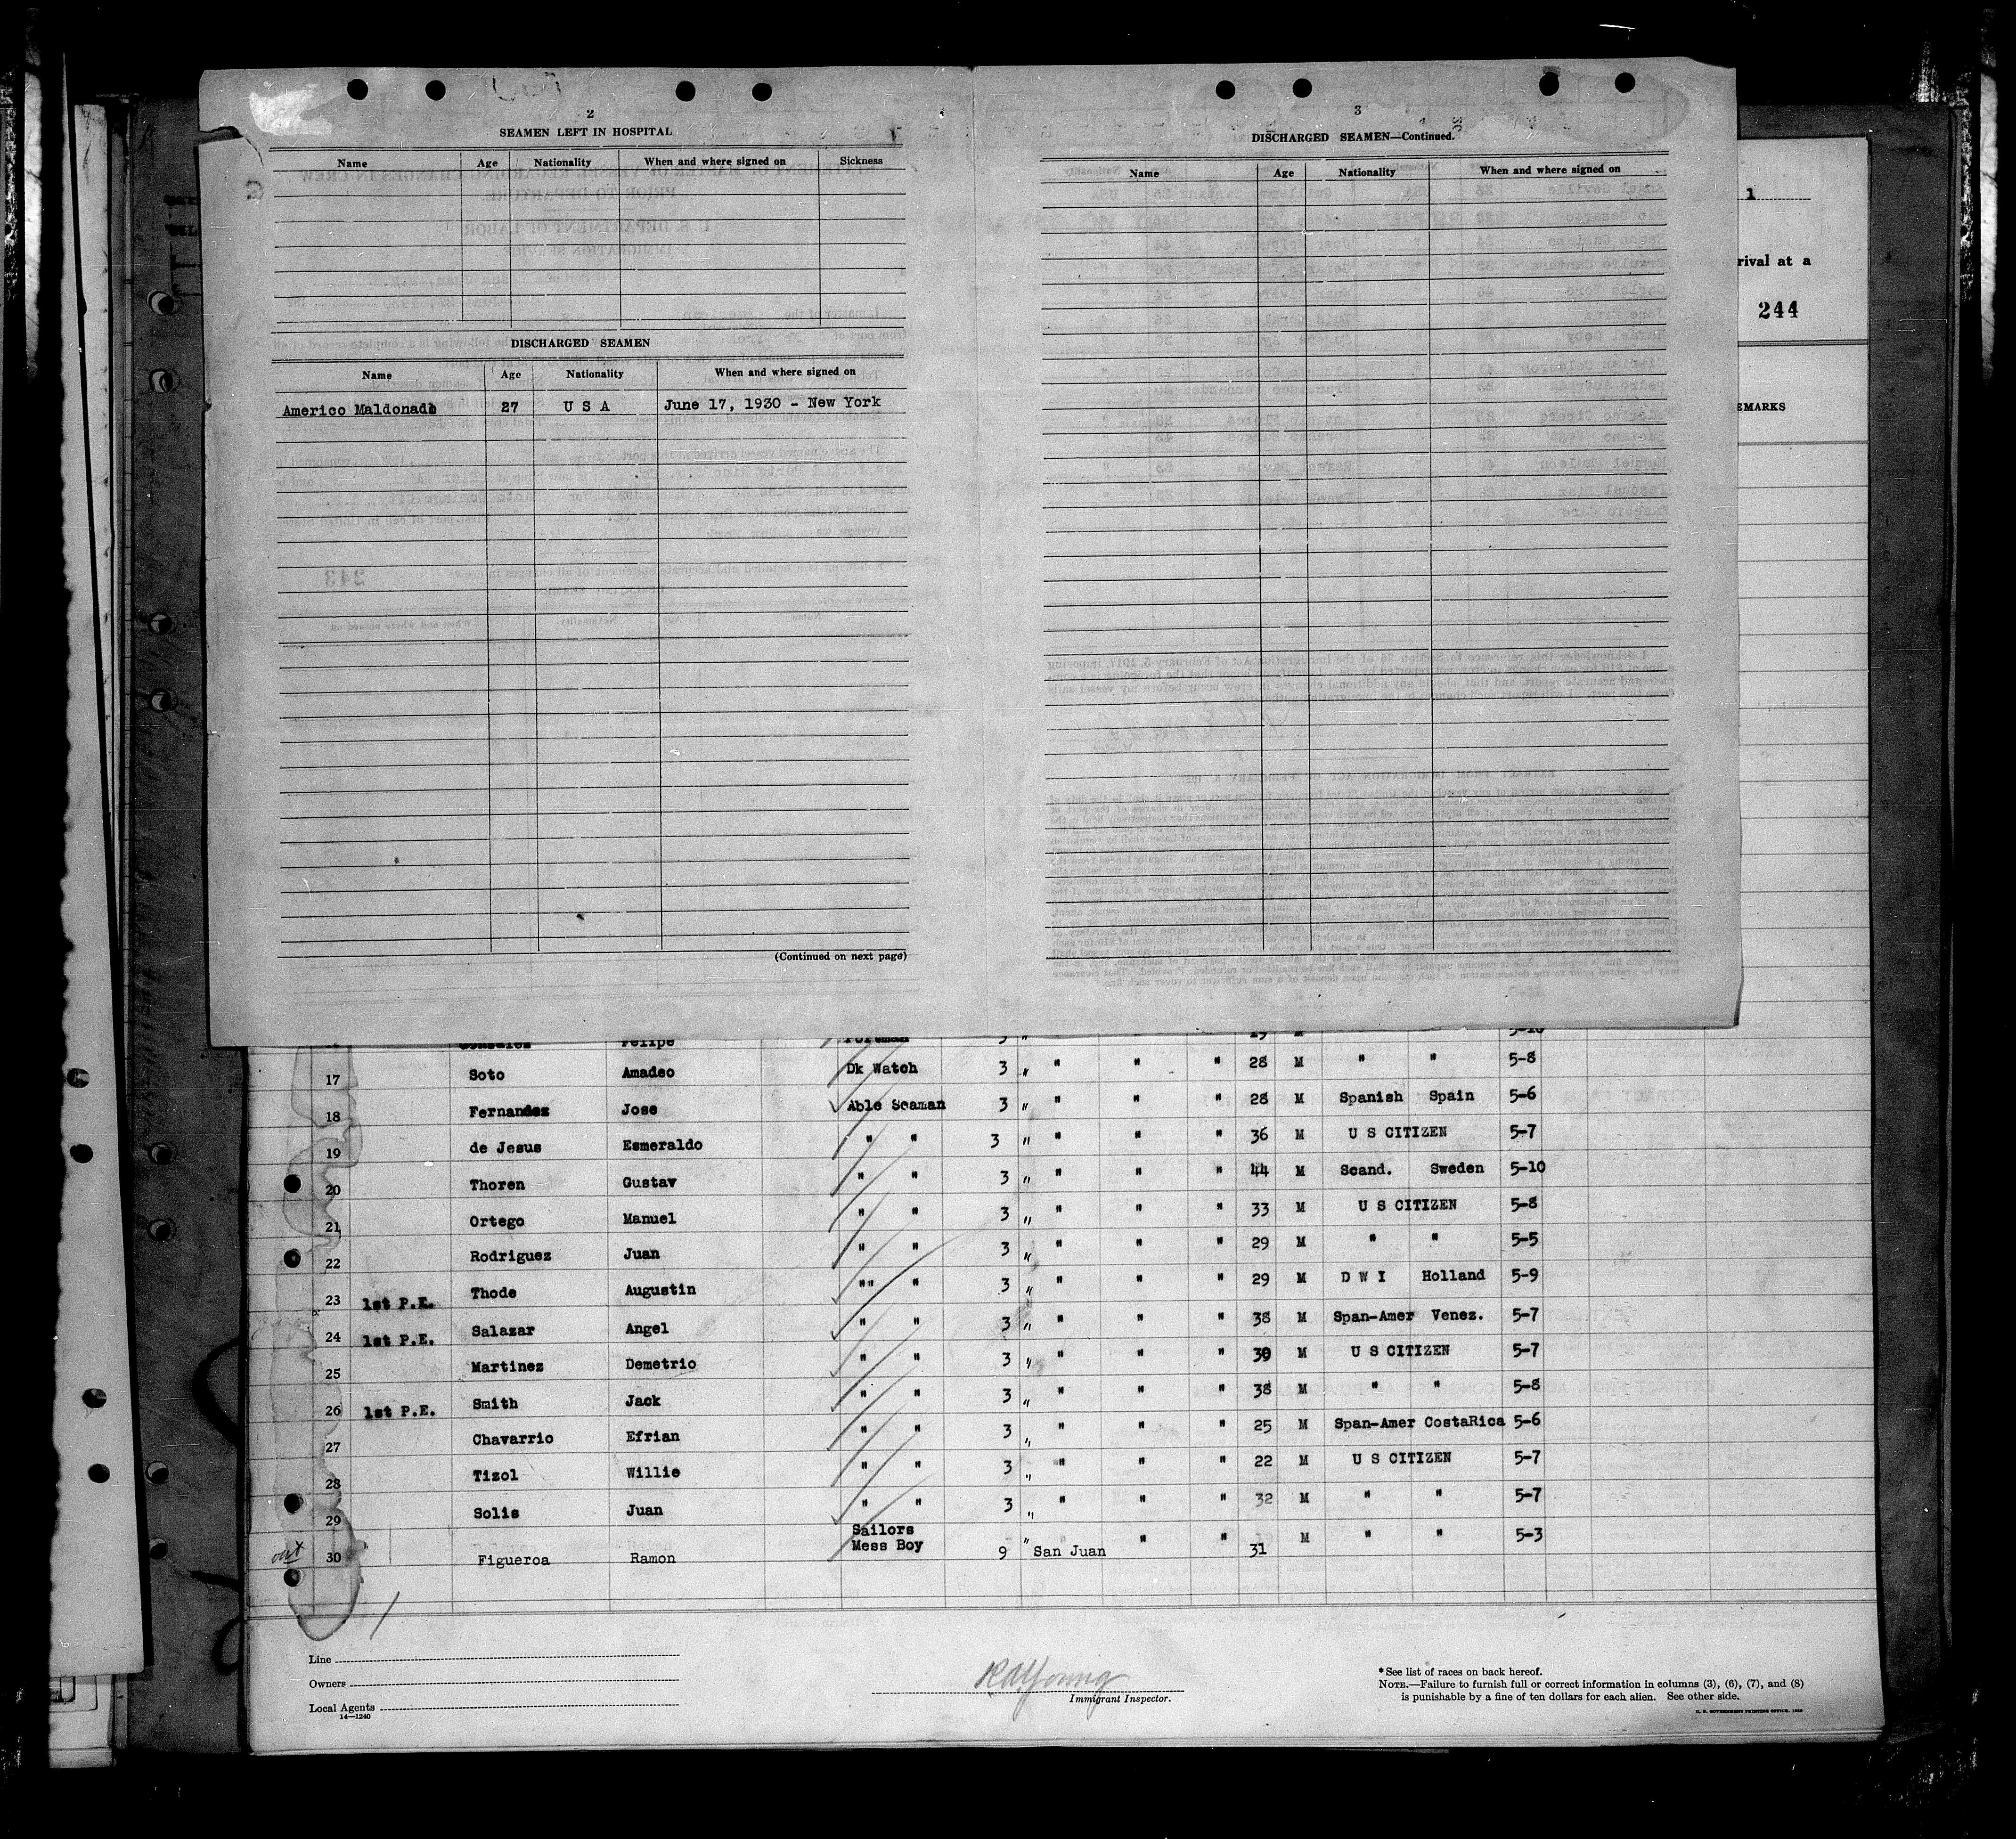 2
SEAMEN LEFT IN HOSPITAL
Name Age Nationality When and where signed on Sickness
DISCHARGED SEAMEN
Name Age Nationality When and where signed on
Americo Maldonado 27 U S A June 17, 1930 - New York
(Continued on next page)
3
DISCHARGED SEAMEN—Continued.
Name Age Nationality When and where signed on
1
rival at a
244
EMARKS
Gonzales Felipe Foreman 3 " 19 M 5-10
17 Soto Amadeo Dk Watch 3 " " " " 28 M " " 5-8
18 Fernandez Jose Able Seaman 3 " " " " 28 M Spanish Spain 5-6
19 de Jesus Esmeraldo " " 3 " " " " 36 M U S CITIZEN 5-7
20 Thoren Gustav " " 3 " " " " 44 M Scand. Sweden 5-10
21 Ortego Manuel " " 3 " " " " 33 M U S CITIZEN 5-8
22 Rodriguez Juan " " 3 " " " " 29 M " " 5-5
23 1st P.E. Thode Augustin "" " 3 " " " " 29 M D W I Holland 5-9
24 1st P.E. Salazar Angel " " 3 " " " " 38 M Span-Amer Venez. 5-7
25 Martinez Demetrio " " 3 " " " " 30 M U S CITIZEN 5-7
26 1st P.E. Smith Jack " " 3 " " " " 38 M " " 5-8
27 Chavarrio Efrian " " 3 " " " " 25 M Span-Amer CostaRica 5-6
28 Tizol Willie " " 3 " " " " 22 M U S CITIZEN 5-7
29 Solis Juan " " 3 " " " " 32 M " " 5-7
out 30 Figueroa Ramon Sailors Mess Boy 9 " San Juan " " 31 M " " 5-3
Line
Owners
Local Agents
14—1240
RAYoung
Immigrant Inspector.
* See list of races on back hereof.
NOTE.—Failure to furnish full or correct information in columns (3), (6), (7), and (8)
is punishable by a fine of ten dollars for each alien. See other side.
U. S. GOVERNMENT PRINTING OFFICE.